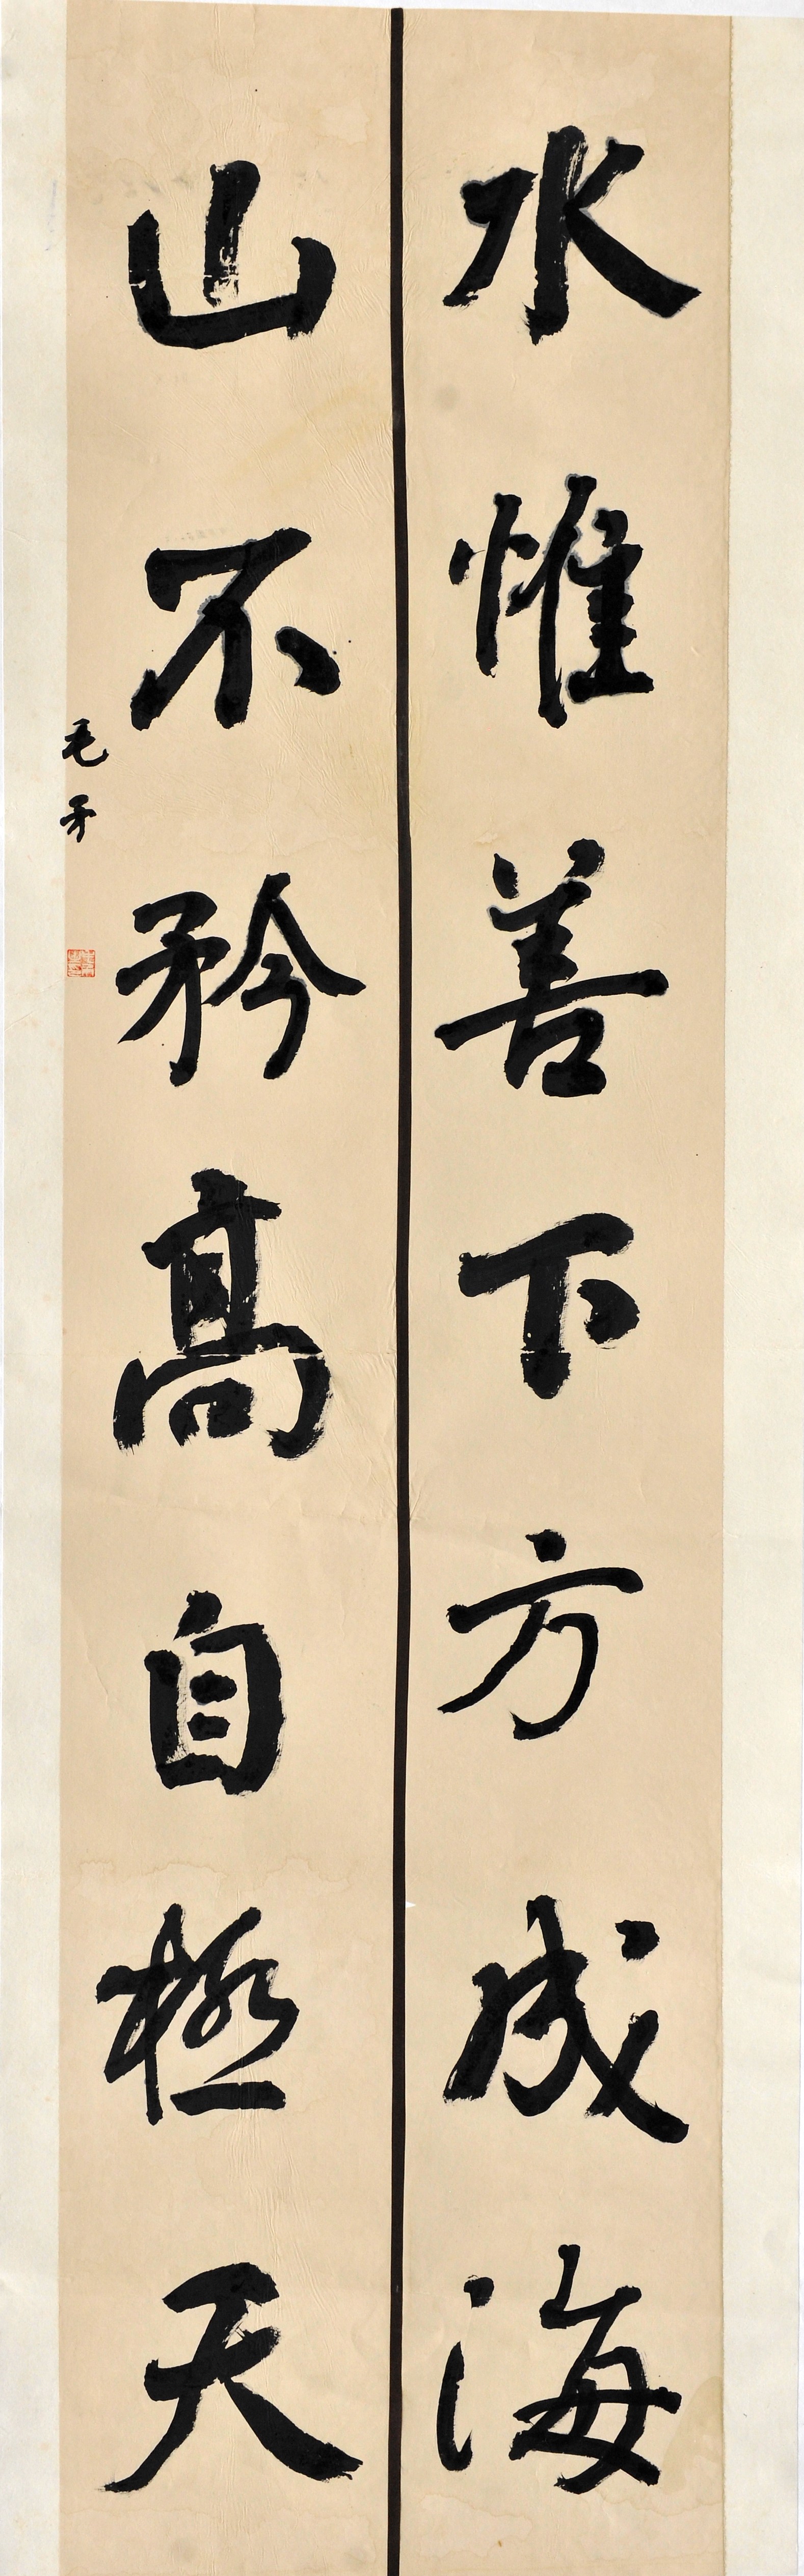 水惟善下方成海
山不矜高自極天
毛矛